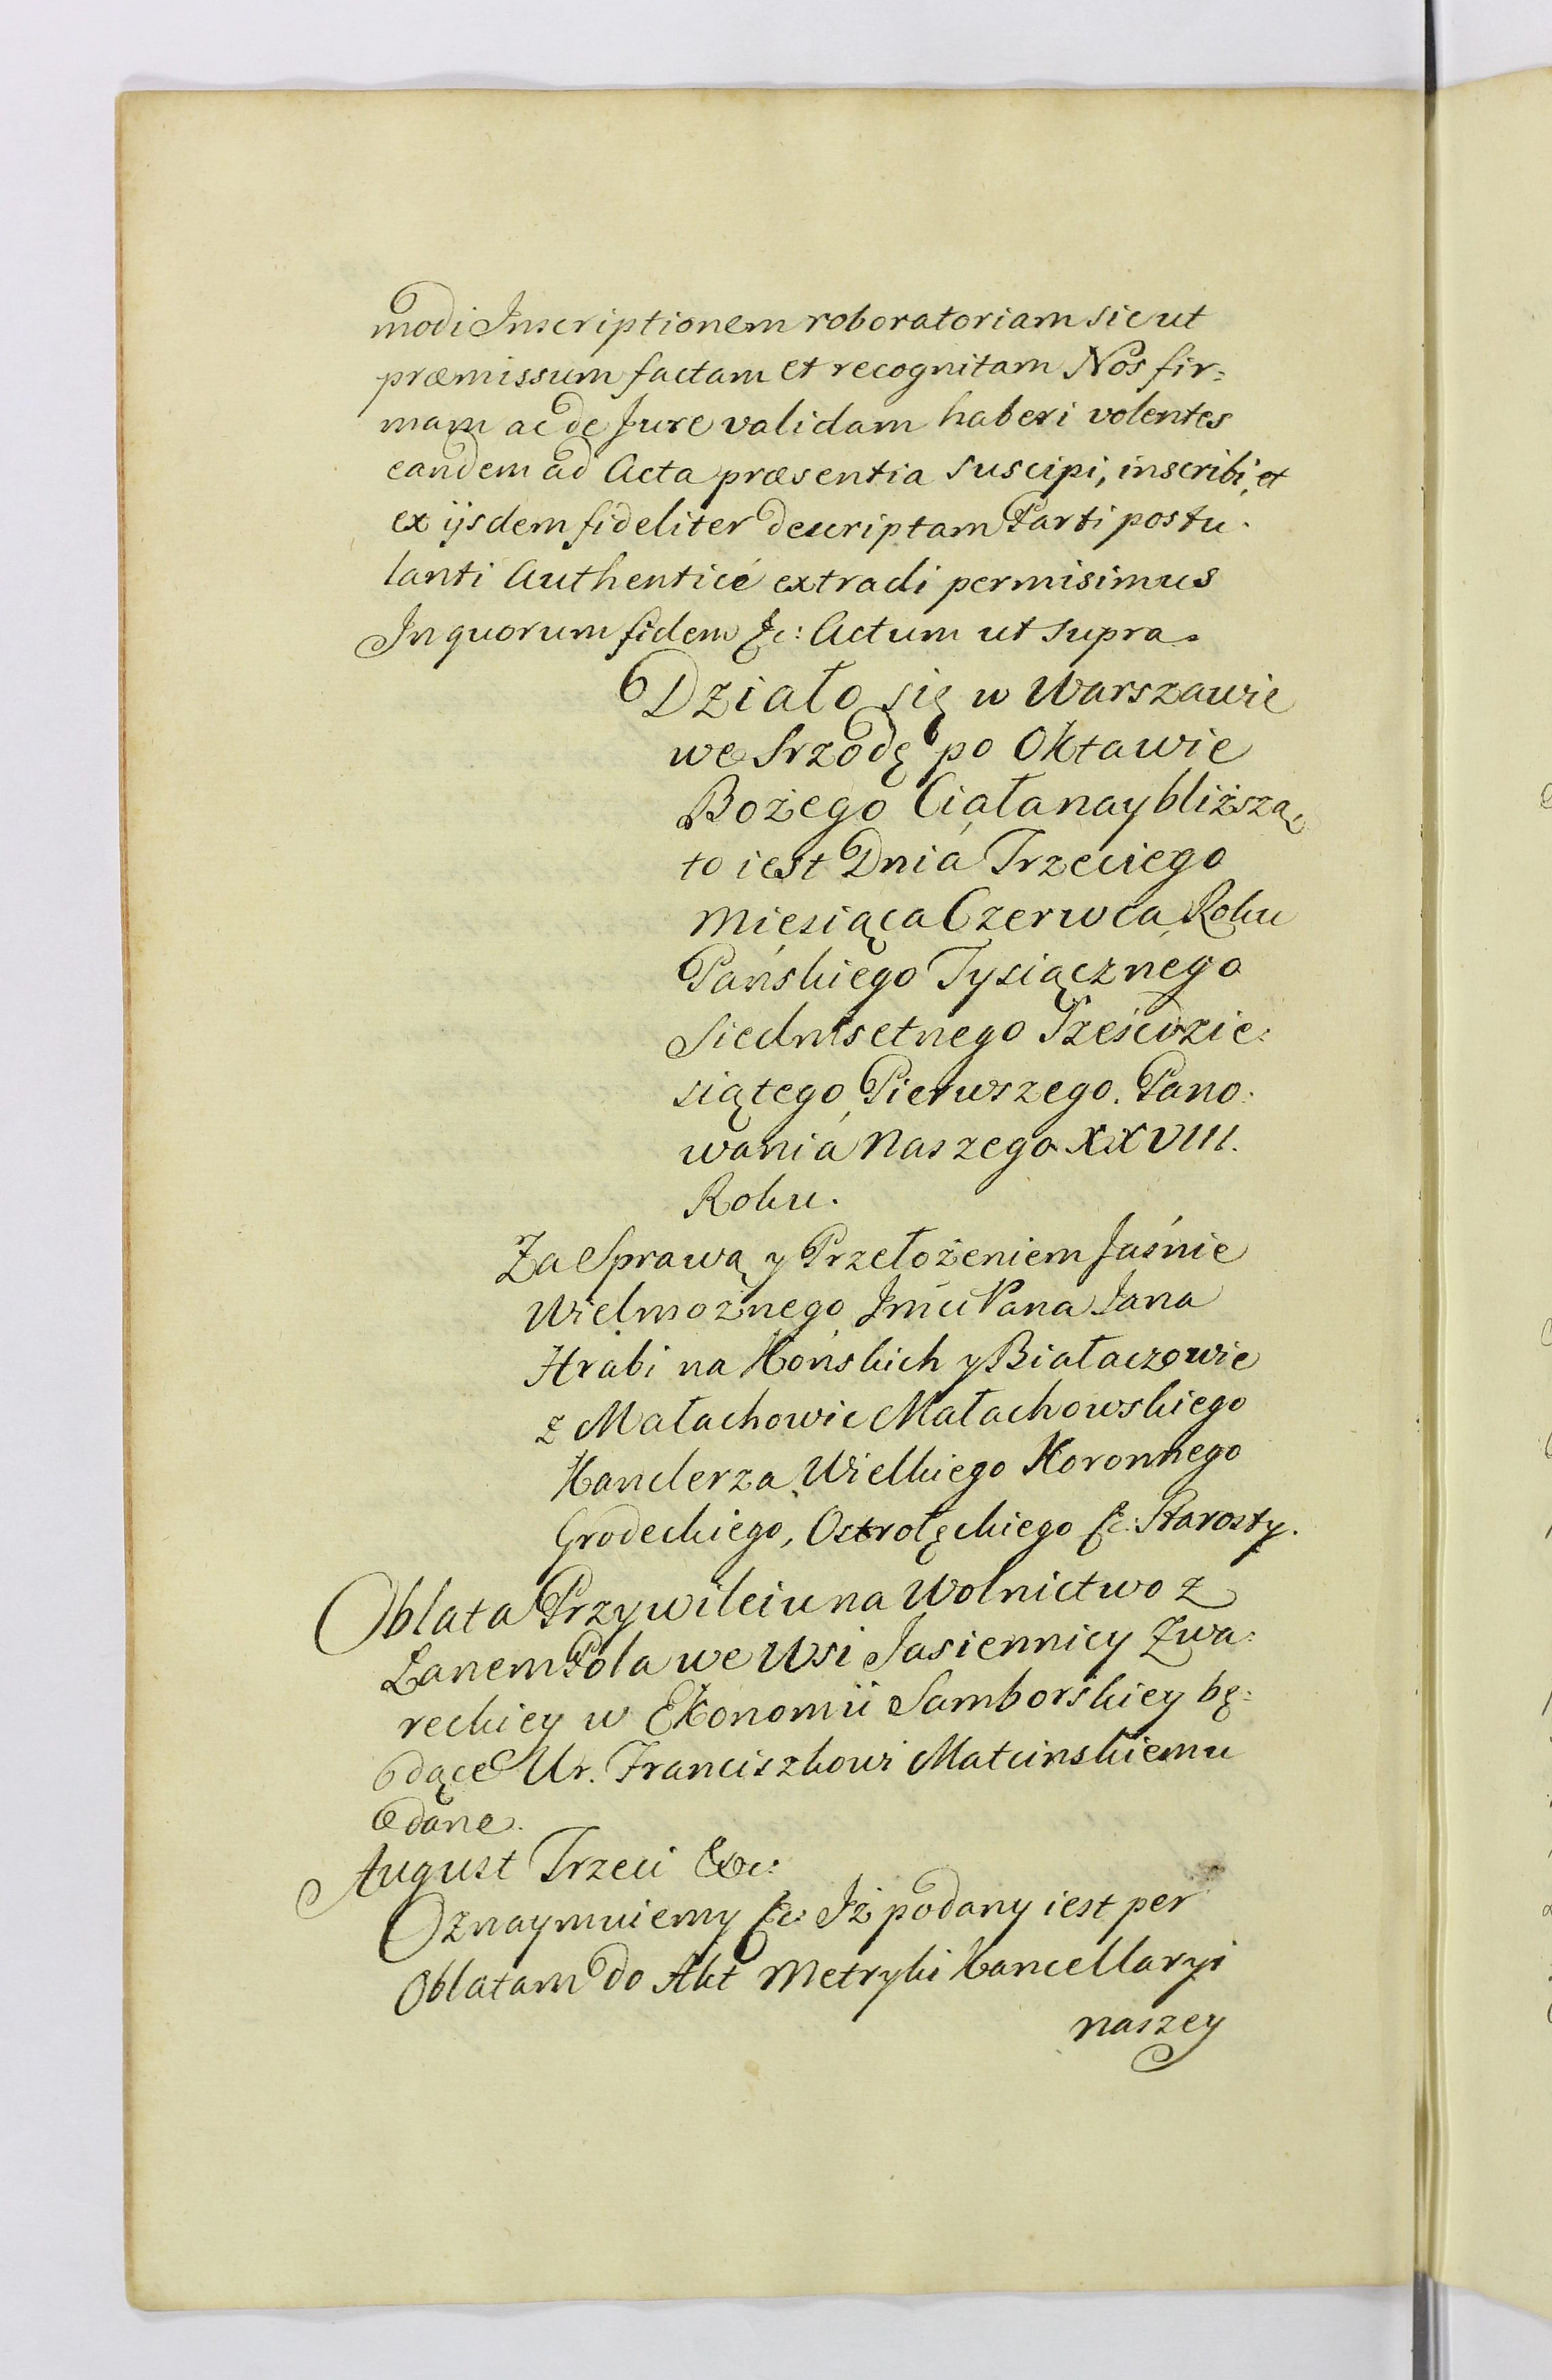 modi Inscriptionem roboratoriam sicut
præmissum factam et recognitam Nos fir=
mam ac de Jure validam haberi volentes
eandem ad Acta præsentia suscipi, inscribi, et
ex ijsdem fideliter descriptam Parti postu=
lanti Authenticé extradi permisimus
In quorum fidem &c: Actum ut supra.
Działo się w Warszawie
we Srzodę po Oktawie
Bożego Ciała naybliższą
to iest Dnia Trzeciego
Miesiąca Czerwca Roku
Pańskiego Tysiącznego
Siedmsetnego Sześćdzie:
siątego Pierwszego. Pano:
wania Naszego XXVIII.
Roku.
Za Sprawą y Przełożeniem Jaśnie
Wielmożnego Jmci Pana Jana
Hrabi na Końskich y Białaczowie
z Małachowic Małachowskiego
Kanclerza Wielkiego Koronnego
Grodeckiego, Ostrołęckiego &c: Starosty.
Oblata Przywileiu na Wolnictwo z
Łanem Pola we Wsi Jasiennicy Zwa:
reckiey w Ekonomii Samborskiey bę:
dące Ur. Franciszkowi Matcinskiemu
dane.
August Trzeci &c:
Oznaymuiemy &c: Iż podany iest per
Oblatam do Akt Metryki Kancellaryi
naszey